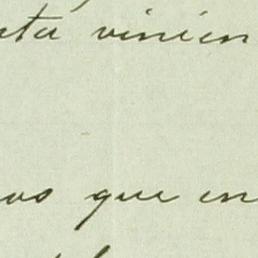 ta vinien
os que en